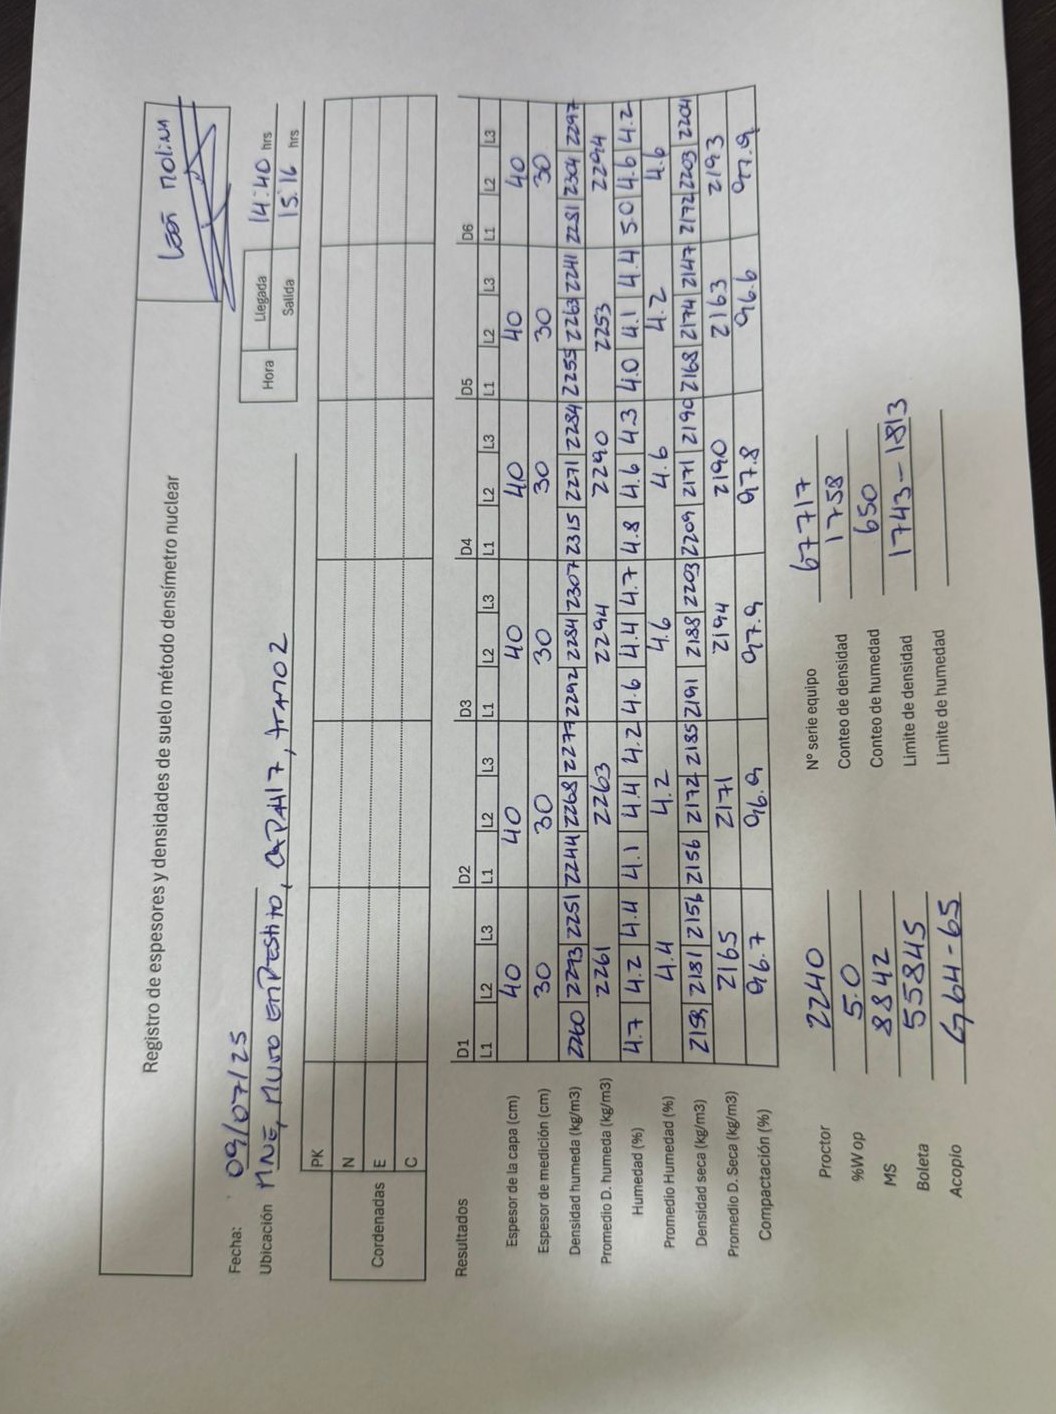 Registro de espesores y densidades de suelo método densímetro nuclear
Fecha: 09/07/25
Hora Llegada 14:40 hrs
Salida 15:16 hrs
Ubicación MNE, muro enrestito, capa 417, tramo 2
PK
Cordenadas N
E
C
Resultados
D1 D2 D3 D4 D5 D6
L1 L2 L3 L1 L2 L3 L1 L2 L3 L1 L2 L3 L1 L2 L3 L1 L2 L3
Espesor de la capa (cm) 40 40 40 40 40 40
Espesor de medición (cm) 30 30 30 30 30 30
Densidad humeda (kg/m3) 2260 2273 2251 2244 2268 2277 2292 2284 2307 2315 2271 2284 2255 2263 2241 2281 2304 2297
Promedio D. humeda (kg/m3) 2261 2263 2294 2290 2253 2294
Humedad (%) 4.7 4.2 4.4 4.1 4.4 4.2 4.6 4.4 4.7 4.8 4.6 4.3 4.0 4.1 4.4 5.0 4.6 4.2
Promedio Humedad (%) 4.4 4.2 4.6 4.6 4.2 4.6
Densidad seca (kg/m3) 2159 2181 2156 2156 2172 2185 2191 2188 2203 2209 2171 2190 2168 2174 2147 2172 2203 2204
Promedio D. Seca (kg/m3) 2165 2171 2194 2190 2163 2193
Compactación (%) 96.7 96.9 97.9 97.8 96.6 97.9
Proctor 2240
%W op 5.0
MS 8842
Boleta 55845
Acopio G64-65
Nº serie equipo 67717
Conteo de densidad 1758
Conteo de humedad 650
Limite de densidad 1743-1813
Limite de humedad